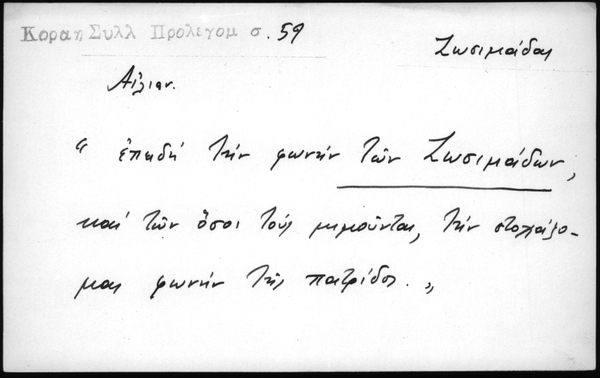 Κοραη Συλλ Προλεγομ σ. 59
Ζωσιμάδαι
Αἰλιαν.
“ ἐπειδή τήν φωνήν τῶν Ζωσιμάδων,
καί τῶν ὅσοι τούς μιμοῦνται, τήν στοχάζο-
μαι φωνήν τῆς πατρίδος. „